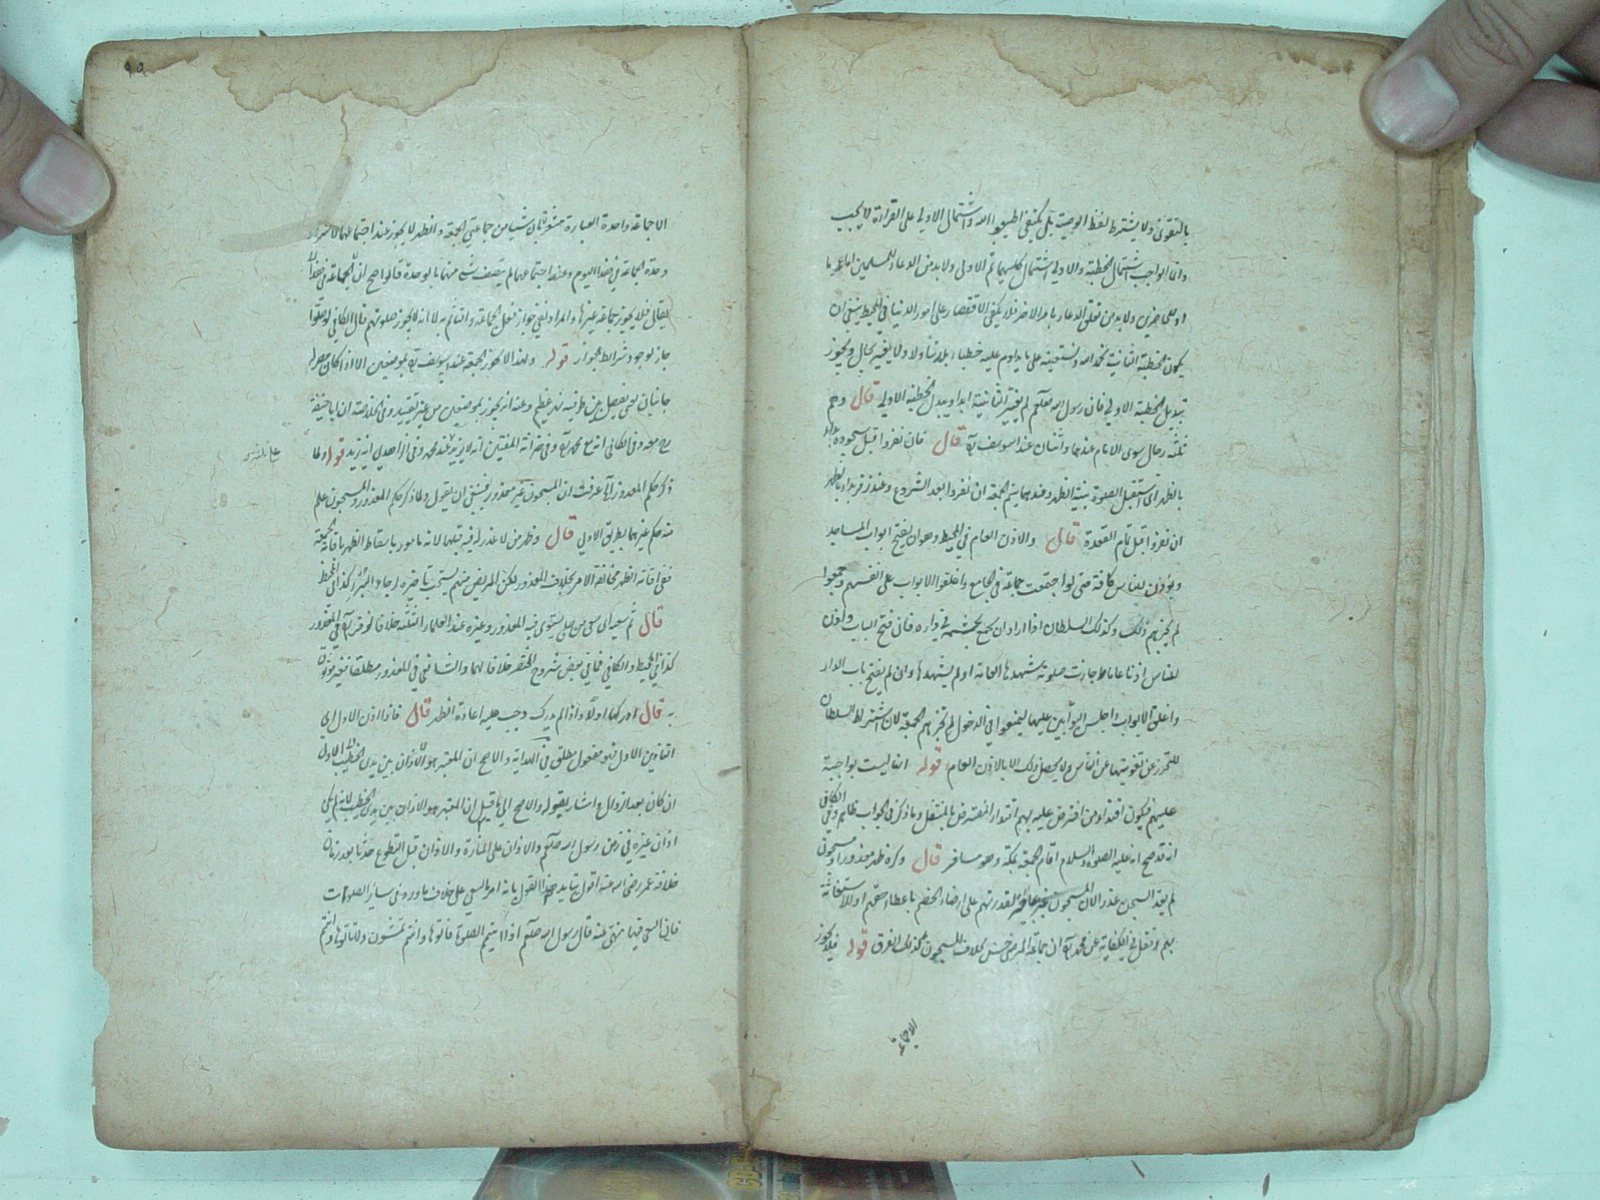 بالتقوى ولا يشترط لفظ الوصية بل يكفي اطيعوا الله واشتمال الاولى على القراءة لا يجب
وانما الواجب اشتمال الخطبة والاولى اشتمال كليهما ثم الاولى ولا بد من الدعاء للمسلمين اما
اولى اخرى ولا بد من تعلق الدعاء بامر الآخرة فلا يكفي الاقتصار على امور الدنيا في المحيط ينبغي ان
يكون الخطبة الثانية نحمد الله ونستعينه على ما يداوم عليه خطباء بلدتنا ولا يغير بحال ويجوز
تبديل الخطبة الاولى فان رسول الله صلعم لم يغير الثانية ابدا ويبدل الخطبة الاولى قال وهم
ثلثة رجال سوى الامام عندهما واثنان عند ابي يوسف قال فان نفروا قبل سجوده بدأ
بالظهر اي استقبل الصلوة بنية الظهر وعندهما يتم الجمعة ان نفروا بعد الشروع وعند زفر بدأ بالظهر
ان نفروا قبل تمام القعدة قال والاذن العام في المحيط وهو ان يفتح ابواب المساجد
ويؤذن للناس كافة حتى لو اجتمعت جماعة في الجامع واغلقوا الابواب على انفسهم وجمعوا
لم يجزهم ذلك وكذلك السلطان اذا اراد ان يجمع بحشمه في داره فان فتح الباب واذن
للناس اذنا عاما جازت صلوته شهدها العامة او لم يشهدها وان لم يفتح باب الدار
واغلق الابواب واجلس البوابين عليها ليمنعوا عن الدخول لم تجزهم الجمعة لان اشتراط السلطان
للتحرز عن تفويتها عن الناس ولا يحصل ذلك الا بالاذن العام قوله انها ليست بواجبة
عليهم فيكون اقتداء من افترض عليه بهم اقتداء المفترض بالمتنفل وما ذكر في الجواب ظاهر وفي الكافي
انه قد صح انه عليه الصلوة والسلام اقام الجمعة بمكة وهو مسافر قال وكره ظهر معذور او مسجون
لم يعد السجن عذرا لان المسجون غير عاجز لقدرتهم على ارضاء الخصم باعطاء حقهم او للاستغاثة
بهم ونقل في الكفاية عن محمد ان جماعة المرضى حسن بخلاف المسجون كذلك الفرق قوله فلا يجوز
الا جماعة
٩٥
الا جماعة واحدة العبارة مشعرة بان شيئا من جماعتي الجمعة والظهر لا يجوز عند اجتماعهما لاشتراط
وحدة الجماعة في هذا اليوم وعند اجتماعهما لم يتصف شيء منهما بالوحدة قالوا صح ان الجماعة في هذا ان
يقال فلا يجوز جماعة غيرها والمراد نفي جواز فعل الجماعة واثم به لا انه لا يجوز صلوتهم قال في الكافي لو صلوا
جاز لوجود شرائط الجواز قوله ولهذا لا تجوز الجمعة عند ابي يوسف بموضعين الا اذا كان مصر له
جانبان يعني يفصل بين طرفيه نهر عظيم وعنه انه يجوز بموضعين من غير تقييد وفي الخلاصة ان ابا حنيفة
رح معه وفي الكافي انه مع محمد وفي خزانة المفتين انه لا يزيد عند محمد وفي الزاهدي انه يزيد قوله ولما
ذكر حكم المعذور آه عرفت ان المسجون غير معذور فينبغي ان يقول ولما ذكر حكم المعذور والمسجون علم
منه حكم غيرهما بطريق الاولى قال وظهر من لا عذر له فيه قبلها لانه مأمور باسقاط الظهر باقامة الجمعة
ففي اقامة الظهر مخالفة الامر بخلاف المعذور لكن المريض منهم يستحب تأخيره لرجاء البرء كذا في المحيط
قال ثم سعيه اي سعي من صلى يستوي فيه المعذور وغيره عند العلماء الثلثة خلافا لزفر في المعذور
كذا في المحيط والكافي فما في بعض شروح المختصر خلافا لهما والشافعي في المعذور مطلقا غير موثوق
به قال ادركها اولا واذا لم يدرك وجب عليه اعادة الظهر قال فاذا اذن الاول اي
التأذين الاول فهو مفعول مطلق في الهداية والاصح ان المعتبر هو الاذان بين يدي الخطيب الاول
ان كان بعد الزوال اشار بقوله والاصح الى ما قيل ان المعتبر هو الاذان بين يدي الخطيب لانه لم يكن
اذان غيره في زمن رسول الله صلعم والاذان على المنارة والاذان قبل التطوع حدثا بعد زمان
خلافة عمر رضي الله عنه اقول يتأيد هذا القول بانه امر بالسعي على خلاف ما ورد في سائر الصلوات
فان السعي فيها منهي عنه قال رسول الله صلعم اذا اتيتم الصلوة فأتوها وانتم تمشون ولا تأتوها وانتم